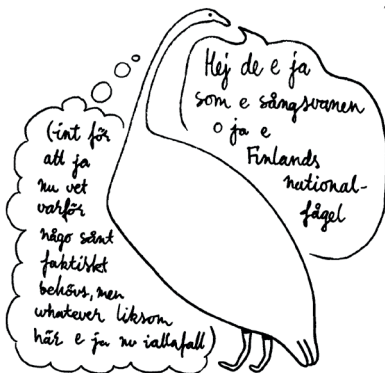 Hej de e ja
som e sångsvanen
o ja e
Finlands
national-
fågel
(-int för
att ja
nu vet
varför
någo sånt
faktiskt
behövs, men
whatever liksom
här e ja nu iallafall)